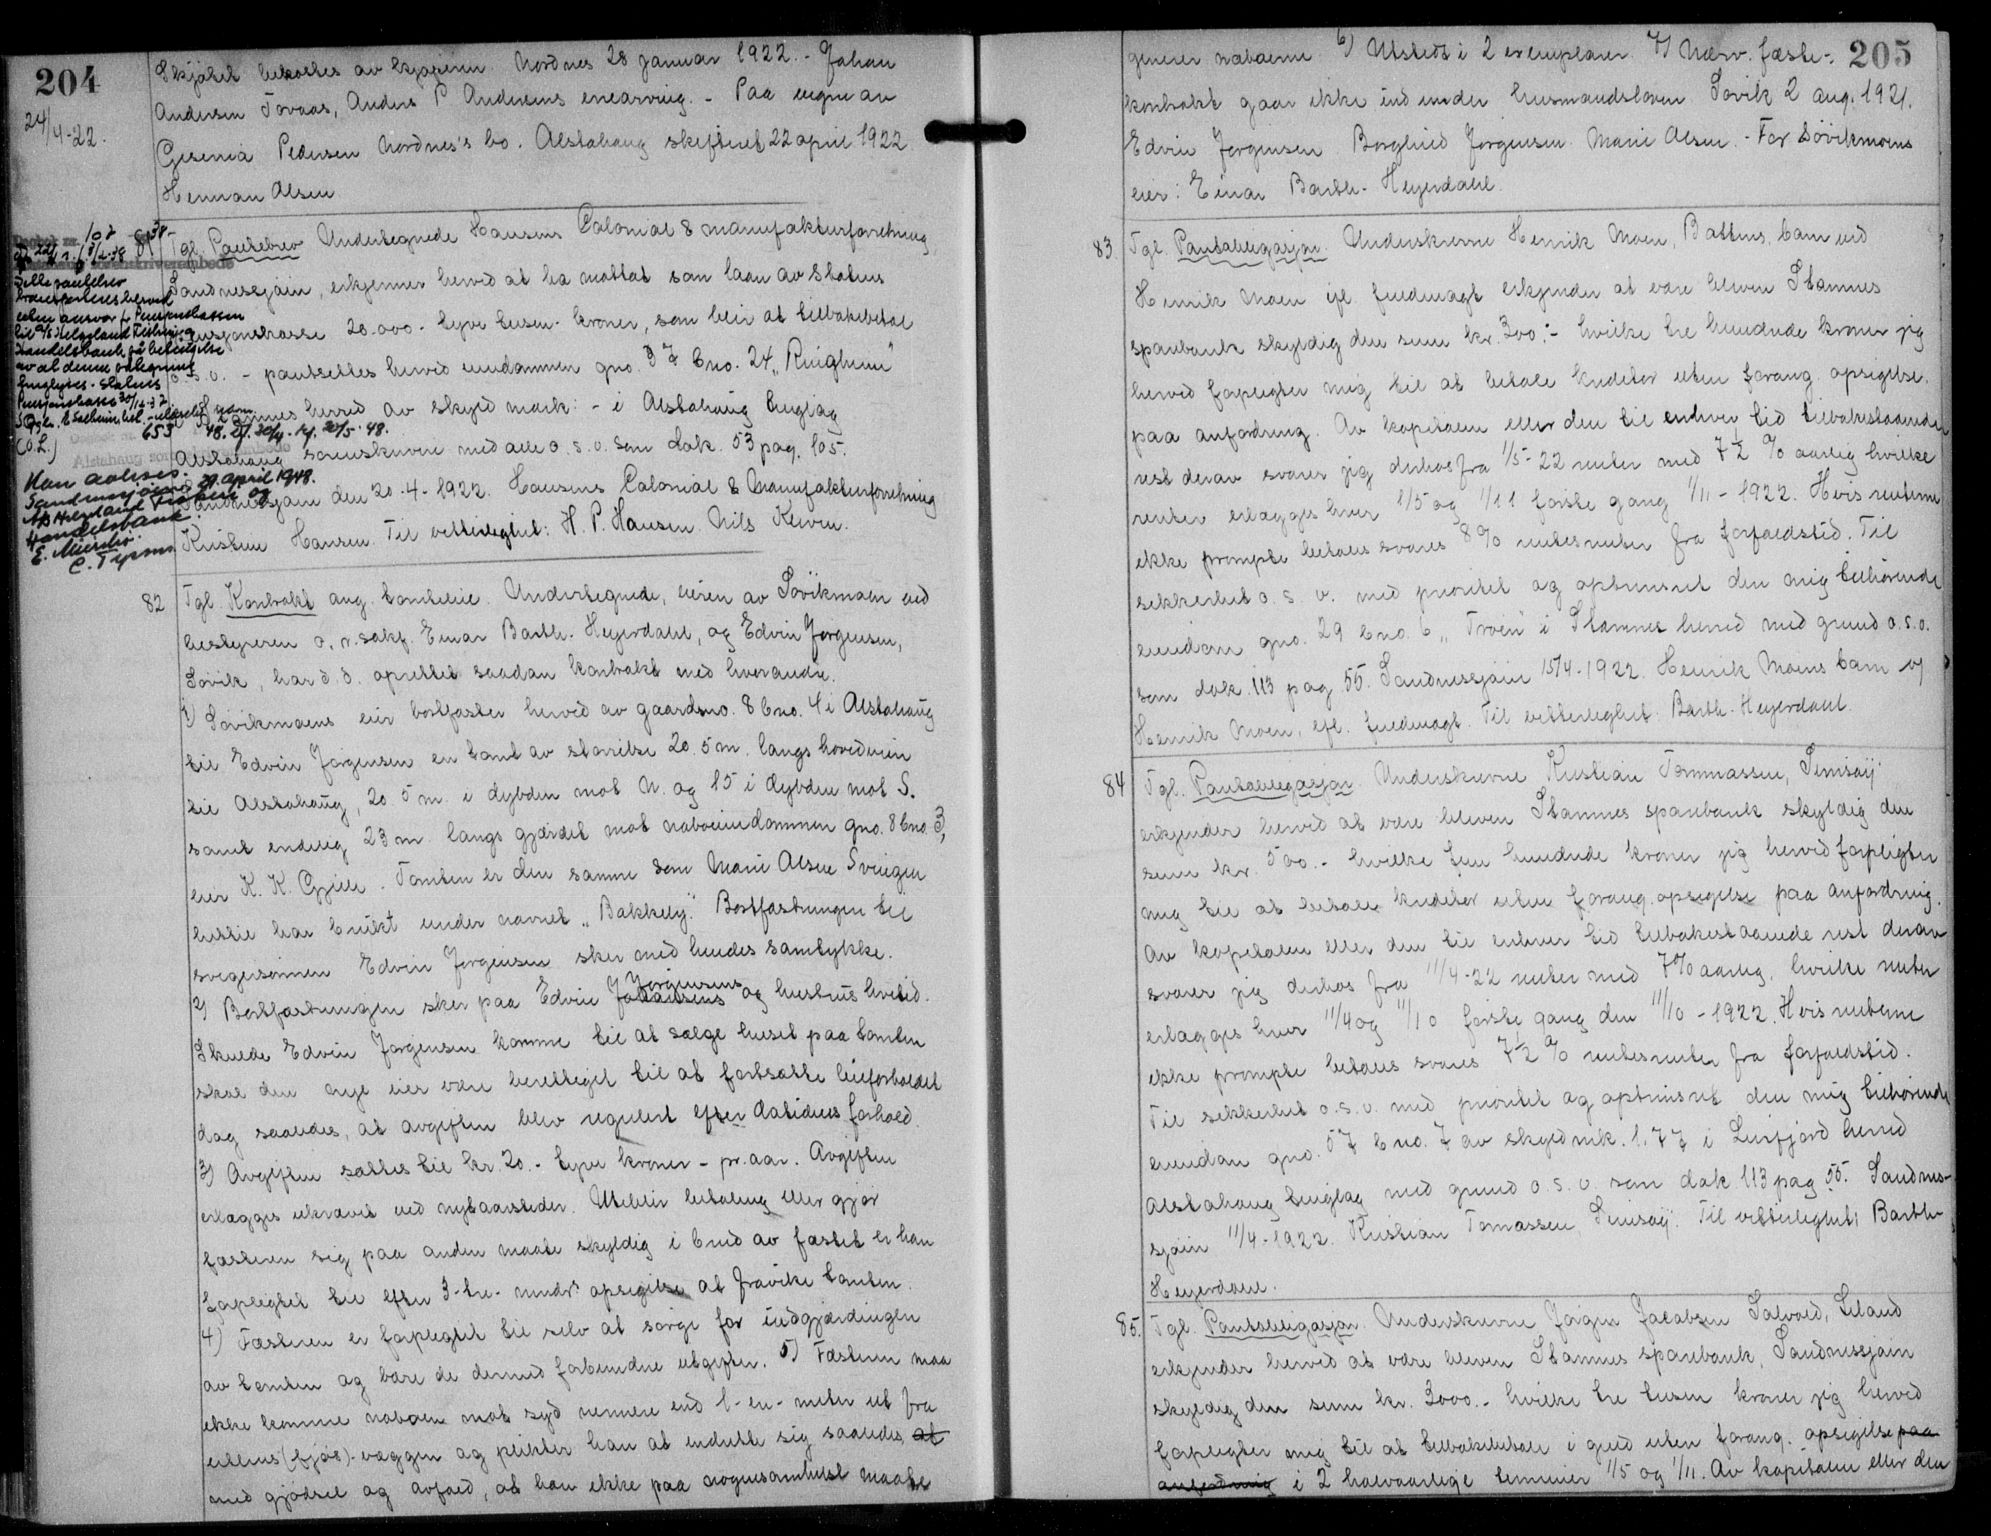 204
24/4-22.
Skjøtet bekostes av kjøperen. Nordnes 28 januar 1922. - Johan
Andersen Tovaas, Anders P. Andersens enearving. - Paa vegne av
Gesenia Pedersen Nordnes's bo. Alstahaug skifteret 22 april 1922.
Herman Olsen
81 Tgl. Pantebrev Undertegnede Hansens Colonial & manufakturforretning
Sandnessjøen, erkjenner herved at ha mottat som laan av Statens
Pensjonskasse 20.000 - tyve tusen - kroner, som blir at tilbakebetale
o.s.v. - pantsettes herved eiendommen gno. 37 bno. 24 "Ringheim"
i Stamnes herred av skyld mark: - i Alstahaug tinglag
Alstahaug sorenskriveri med alle o.s.v. som dok. 53 pag. 105.
Sandnessjøen den 20-4-1922. Hansens Colonial & Manufakturforretning
Kristine Hansen. Til vitterlighet: H. P. Hansen. Nils
Dette pantebrev
transporteres herved
uten ansvar for Pensjonskassen
til A/S Helgeland Fiskeri og
Handelsbank på betingelse
av at denne påtegning
tinglyses. Statens
Pensjonskasse 30/12-32
(O.L.)
653
48. 29/4. 20/5. 48.
Kan avlyses.
Sandnessjøen, 29 april 1948.
A/S Helgeland Fiskeri og
Handelsbank.
82 Tgl. Kontrakt ang. tomteleie. Undertegnede, eieren av Søvikmoen ved
bestyreren o.r.sakf. Einar Barth-Heyerdahl, og Edvin Jørgensen,
Søvik, har d.d. oprettet saadan kontrakt med hverandre.
1) Søvikmoens eier bortfæster herved av gaardsno. 8 bno. 4 i Alstahaug
til Edvin Jørgensen en tomt av størrelse 20.5 m. langs hovedveien
til Alstahaug, 20.5 m. i dybden mot N. og 15 i dybden mot S.
samt endelig 23 m langs gjærdet mot naboeiendommen gno. 8 bno. 3,
eier K. K. Gjille. Tomten er den samme som Marie Olsen Svingen
hittil har brukt under navnet "Bakkely". Bortfæstningen til
svigersønnen Edvin Jørgensen sker med hendes samtykke.
2) Bortfæstningen sker paa Edvin Jørgensens og hustrus livstid.
Skulde Edvin Jørgensen komme til at sælge huset paa tomten
skal den nye eier være berettiget til at fortsætte leieforholdet
dog saaledes, at avgiften blir regulert efter datidens forhold.
3) Avgiften sættes til kr. 20. - tyve kroner - pr. aar. Avgiften
erlægges ukrævet ved nytaarstider. Uteblir betaling eller gjør
fæsteren sig paa anden maate skyldig i brud av fæstet er han
forpligtet til efter 3-tre-mndrs opsigelse at fravike tomten.
4) Fæsteren er forpligtet til selv at sørge for indgjærdingen
av tomten og bære de dermed forbundne utgifter. 5) Fæsteren maa
ikke komme naboen mot syd nærmere end 1-en-meter ut fra
uthus (fjøs)-væggen og plikter han at indrette sig saaledes at
med gjødsel og avfald, at han ikke paa nogensomhelst maate
205
generer naboerne. 6) Utstedt i 2 exemplarer. 7) Nærv. fæste-
kontrakt gaar ikke ind under husmandsloven. Søvik 2 aug. 1921.
Edvin Jørgensen. Borghild Jørgensen. Marie Olsen. - For Søvikmoens
eier: Einar Barth-Heyerdahl.
83 Tgl. Pantobligasjon. Underskrevne Henrik Moen, Bottens, barn ved
Henrik Moen ifl. fuldmagt erkjender at være bleven Stamnes
sparebank skyldig den sum kr. 300:- hvilke tre hundrede kroner jeg
herved forpligter mig til at betale kreditor uten forang. opsigelse
paa anfordring. Av kapitalen eller den til enhver tid tilbakestaaende
rest derav svarer jeg derhos fra 1/5-22 renter med 7½ % aarlig hvilke
renter erlægges hver 1/5 og 1/11 første gang 1/11-1922. Hvis renterne
ikke prompte betales svares 8% rentesrenter fra forfaldstid. Til
sikkerhet o.s.v. med prioritet og optrinsret den mig tilhørende
eiendom gno. 29 bno. 6 "Troen" i Stamnes herred med grund o.s.v.
som dok. 113 pag 55. Sandnessjøen 15/4-1922. Henrik Moens barn v/
Henrik Moen, efl. fuldmagt. Til vitterlighet: Barth-Heyerdahl.
84 Tgl. Pantobligasjon. Underskrevne Kristian Tommassen,
erkjender herved at være bleven Stamnes sparebank skyldig den
sum kr. 500.- hvilke fem hundrede kroner jeg herved forpligter
mig til at betale kreditor uten forang. opsigelse paa anfordring.
Av kapitalen eller den til enhver tid tilbakestaaende rest derav
svarer jeg derhos fra 11/4-22 renter med 7% aarlig, hvilke renter
erlægges hver 11/4 og 11/10 første gang den 11/10-1922. Hvis renterne
ikke prompte betales svares 7½ % rentesrenter fra forfaldstid.
Til sikkerhet o.s.v. med prioritet og optrinsret den mig tilhørende
eiendom gno. 57 bno. 7 av skyldmk. 1.77 i Leirfjord herred
Alstahaug tinglag med grund o.s.v. som dok. 113 pag 55. Sandnes-
sjøen 11/4-1922. Kristian Tomassen, Til vitterlighet: Barth-
Heyerdahl.
85. Tgl. Pantobligasjon. Underskrevne Jørgen Jacobsen Salvold, Leland
erkjender herved at være bleven Stamnes sparebank, Sandnessjøen
skyldig den sum kr. 3000.- hvilke tre tusen kroner jeg herved
forpligter mig til at tilbakebetale i guld uten forang. opsigelse paa
anfordring i 2 halvaarlige terminer 1/5 og 1/11. Av kapitalen eller den